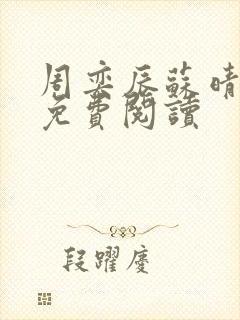 周奕辰蘇晴
免費閱讀
段躍慶